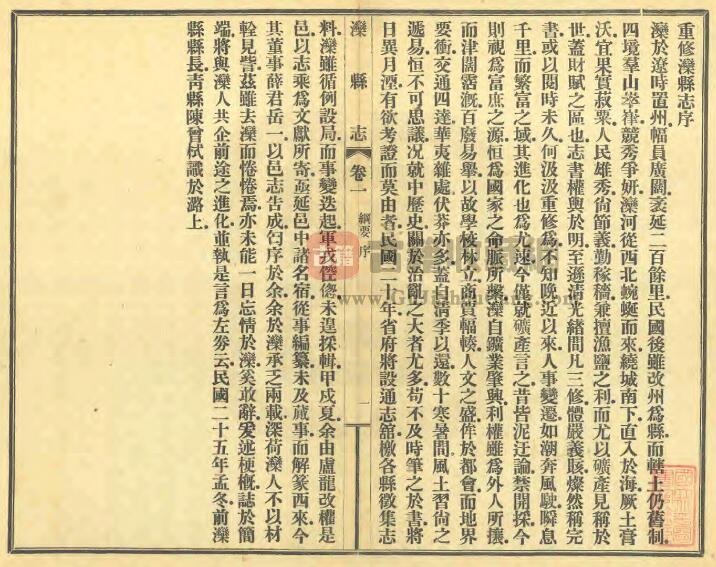 重修灤縣志序
灤於遼時置州幅員廣闊袤延二百餘里民國後雖改州爲縣而轄土仍舊制
四境羣山崒嵂競秀爭妍灤河從西北蜿蜒而來繞城南下直入於海厥土膏
沃宜果實菽粟人民雄秀尙節義勤稼穡兼擅漁鹽之利而尤以礦產見稱於
世蓋財賦之區也志書權輿於明至遜清光緒間凡三修體嚴義賅燦然稱完
書或以閱時未久何汲汲重修爲不知晚近以來人事變遷如潮奔風駛瞬息
千里而繁富之域其進化也爲尤速今僅就礦產言之昔皆泥迂論禁開採今
則視爲富庶之源恒爲國家之命脈所繫灤自鑛業肇興利權雖爲外人所攘
而津關霑漑百廢易舉以故學校林立商賈輻輳人文之盛侔於都會而地界
要衝交通四達華夷雜處伏莽亦多蓋自清季以還數十寒暑間風土習尙之
遞易恒不可思議况就中歷史關於治亂之大者尤多苟不及時筆之於書將
日異月湮有欲考證而莫由者民國二十年省府將設通志館檄各縣徵集志
灤縣志
卷一
綱要 序
一
料灤雖循例設局而事變迭起軍戎倥傯未遑採輯甲戌夏余由盧龍改權是
邑以志乘爲文獻所寄亟延邑中諸名宿從事編纂未及蕆事而解篆西來今
其董事薛君岳一以邑志告成匄序於余余於灤承乏兩載深荷灤人不以材
輇見訾茲雖去灤而惓惓焉亦未能一日忘情於灤奚敢辭爰述梗槪誌於簡
端將與灤人共企前途之進化並執是言爲左劵云民國二十五年孟冬前灤
縣縣長靑縣陳曾栻識於潞上